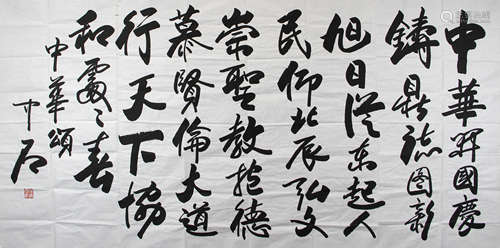 中華昇國慶
鑄鼎誌圖新
旭日從東起人
民仰北辰弘文
崇聖教抱德
慕賢倫大道
行天下協
和處〻春
中華頌
中石